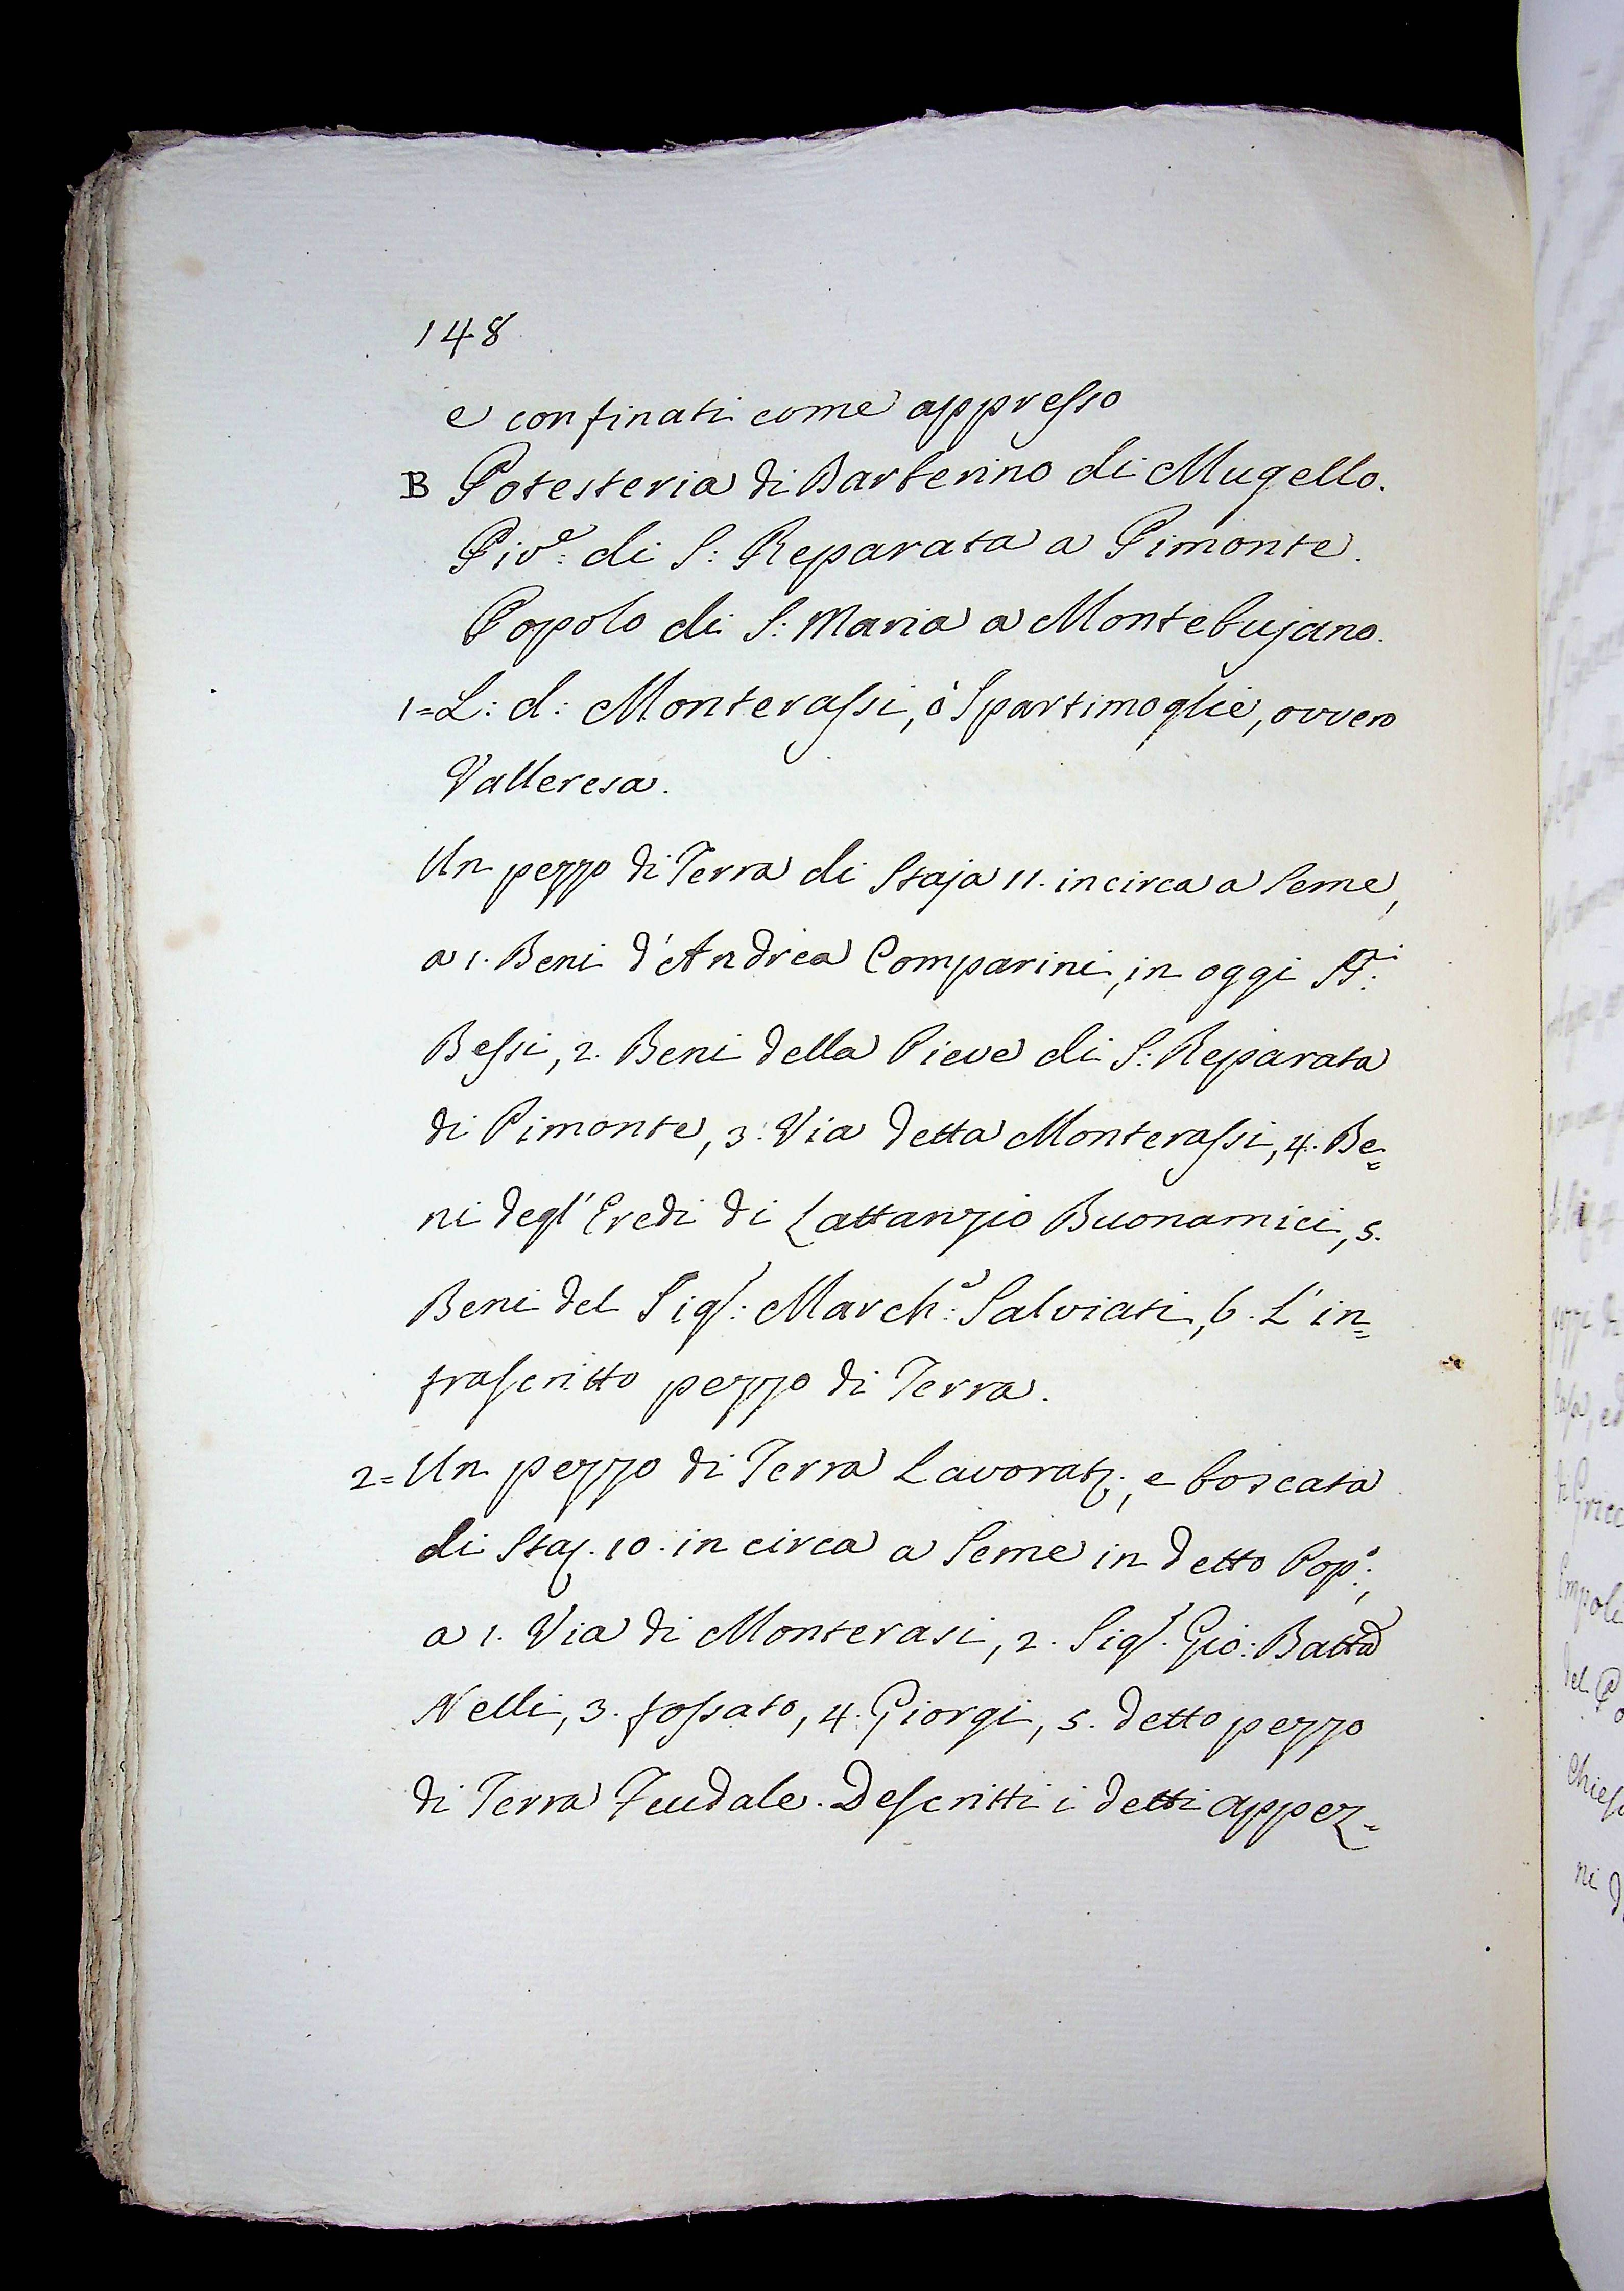 148
e confinati come appresso
B Potesteria di Barberino di Mugello.
Piv.e: di S: Reparata a Pimonte.
Popolo di S: Maria a Montebujano.
1= L: d: Monterassi, ò Spartimoglie, ovvero
Valleresa.
Un pezzo di Terra di Staja 11. incirca a Seme,
a 1. Beni d'Andrea Comparini, in oggi
Bessi, 2. Beni della Pieve di S: Reparata
di Pimonte, 3. Via detta Monterassi, 4. Be=
ni degl'Eredi di Lattanzio Buonamici, 5.
Beni del Sig.r: March.e: Salviati, 6. L'in=
frascritto pezzo di Terra.
2= Un pezzo di Terra Lavorat:, e boscata
di Staj. 10. in circa a Seme in detto Pop.o:,
a 1. Via di Monterasi, 2. Sig.r. Gio: Batta
Nelli, 3. fossato, 4. Giorgi, 5. detto pezzo
di Terra Feudale. Descritti i detti appez=
pezzi di
Casa, ed
Empoli
del Po
Chiesa
ni d